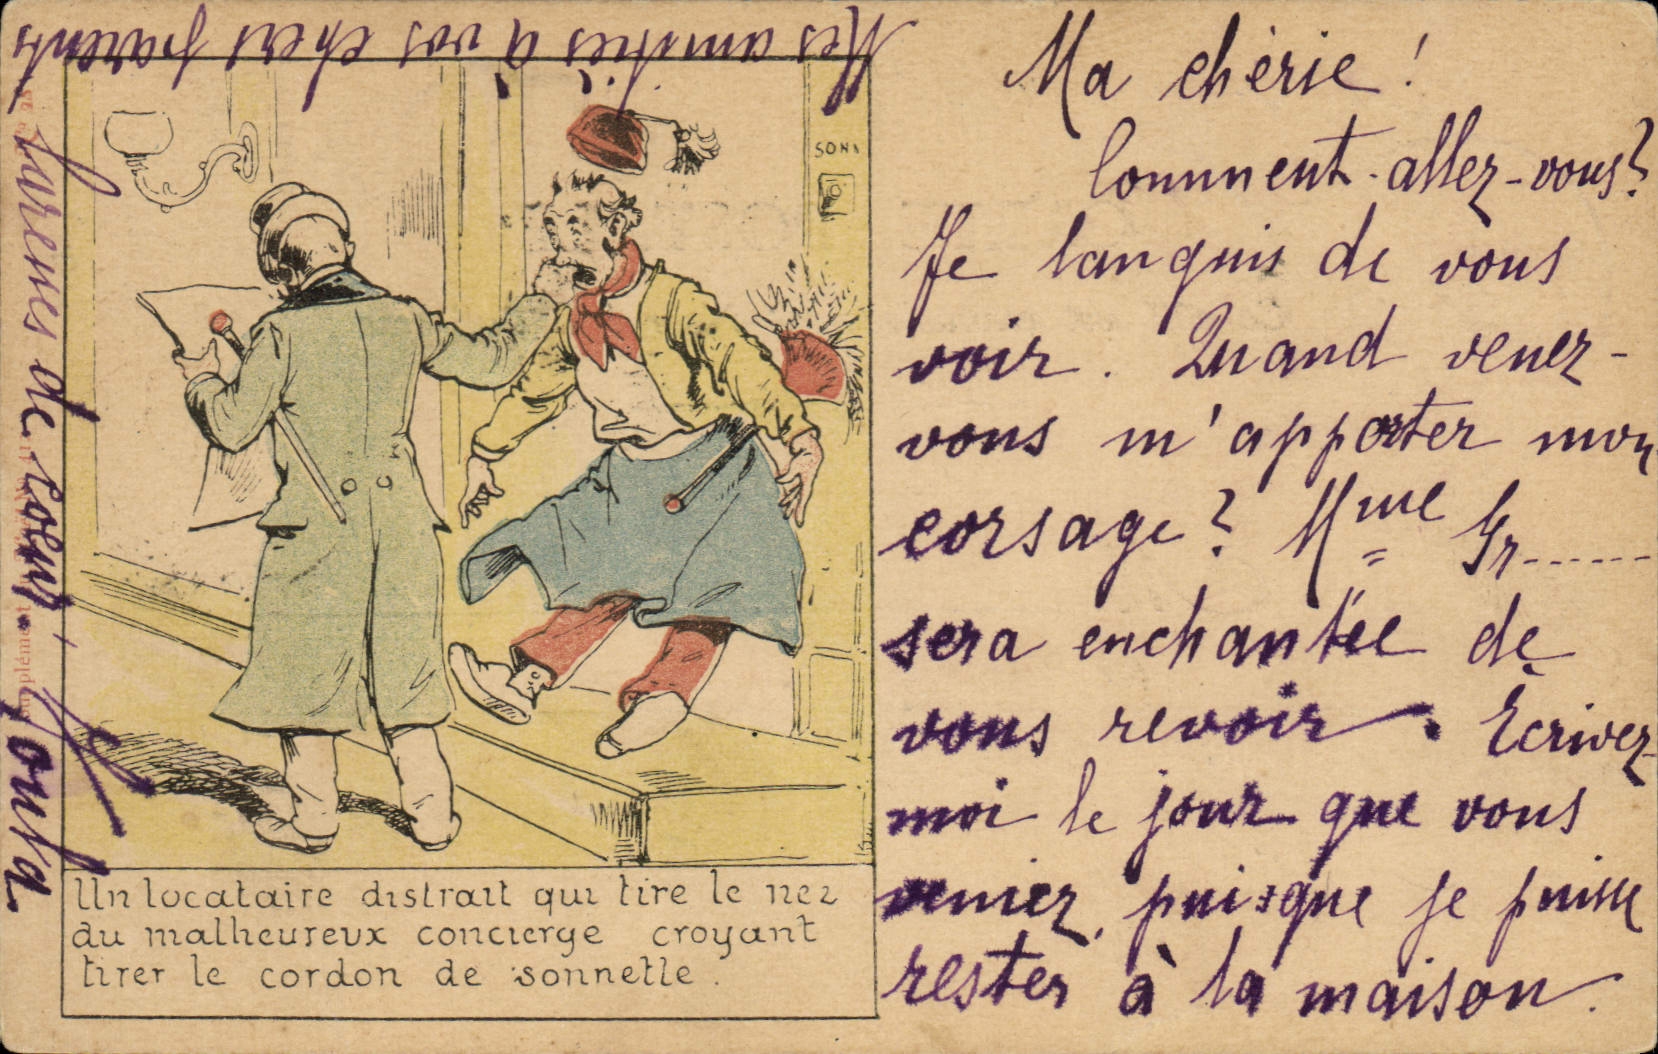 Ma chérie !
Comment-allez-vous?
Je languis de vous
voir. Quand venez-
vous m'apporter mon
corsage? Mme Gr......
sera enchantée de
vous revoir. Ecrivez-
moi le jour que vous
veniez, puisque je puisse
rester à la maison.
Mes amitiés à vos chers parents
de coeur
SONN
Un locataire distrait qui tire le nez
du malheureux concierge croyant
tirer le cordon de sonnette.